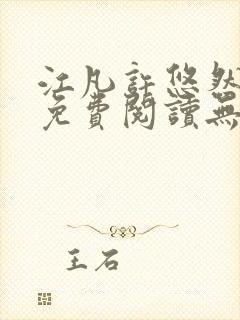 江凡許悠然
免費閱讀無
王石